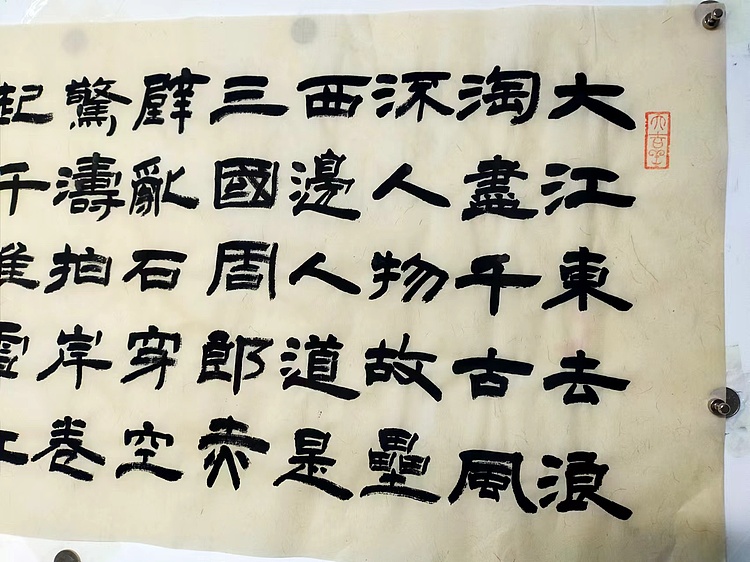 大江東去浪
淘盡千古風
流人物故壘
西邊人道是
三國周郎赤
壁亂石穿空
驚濤拍岸卷
起千